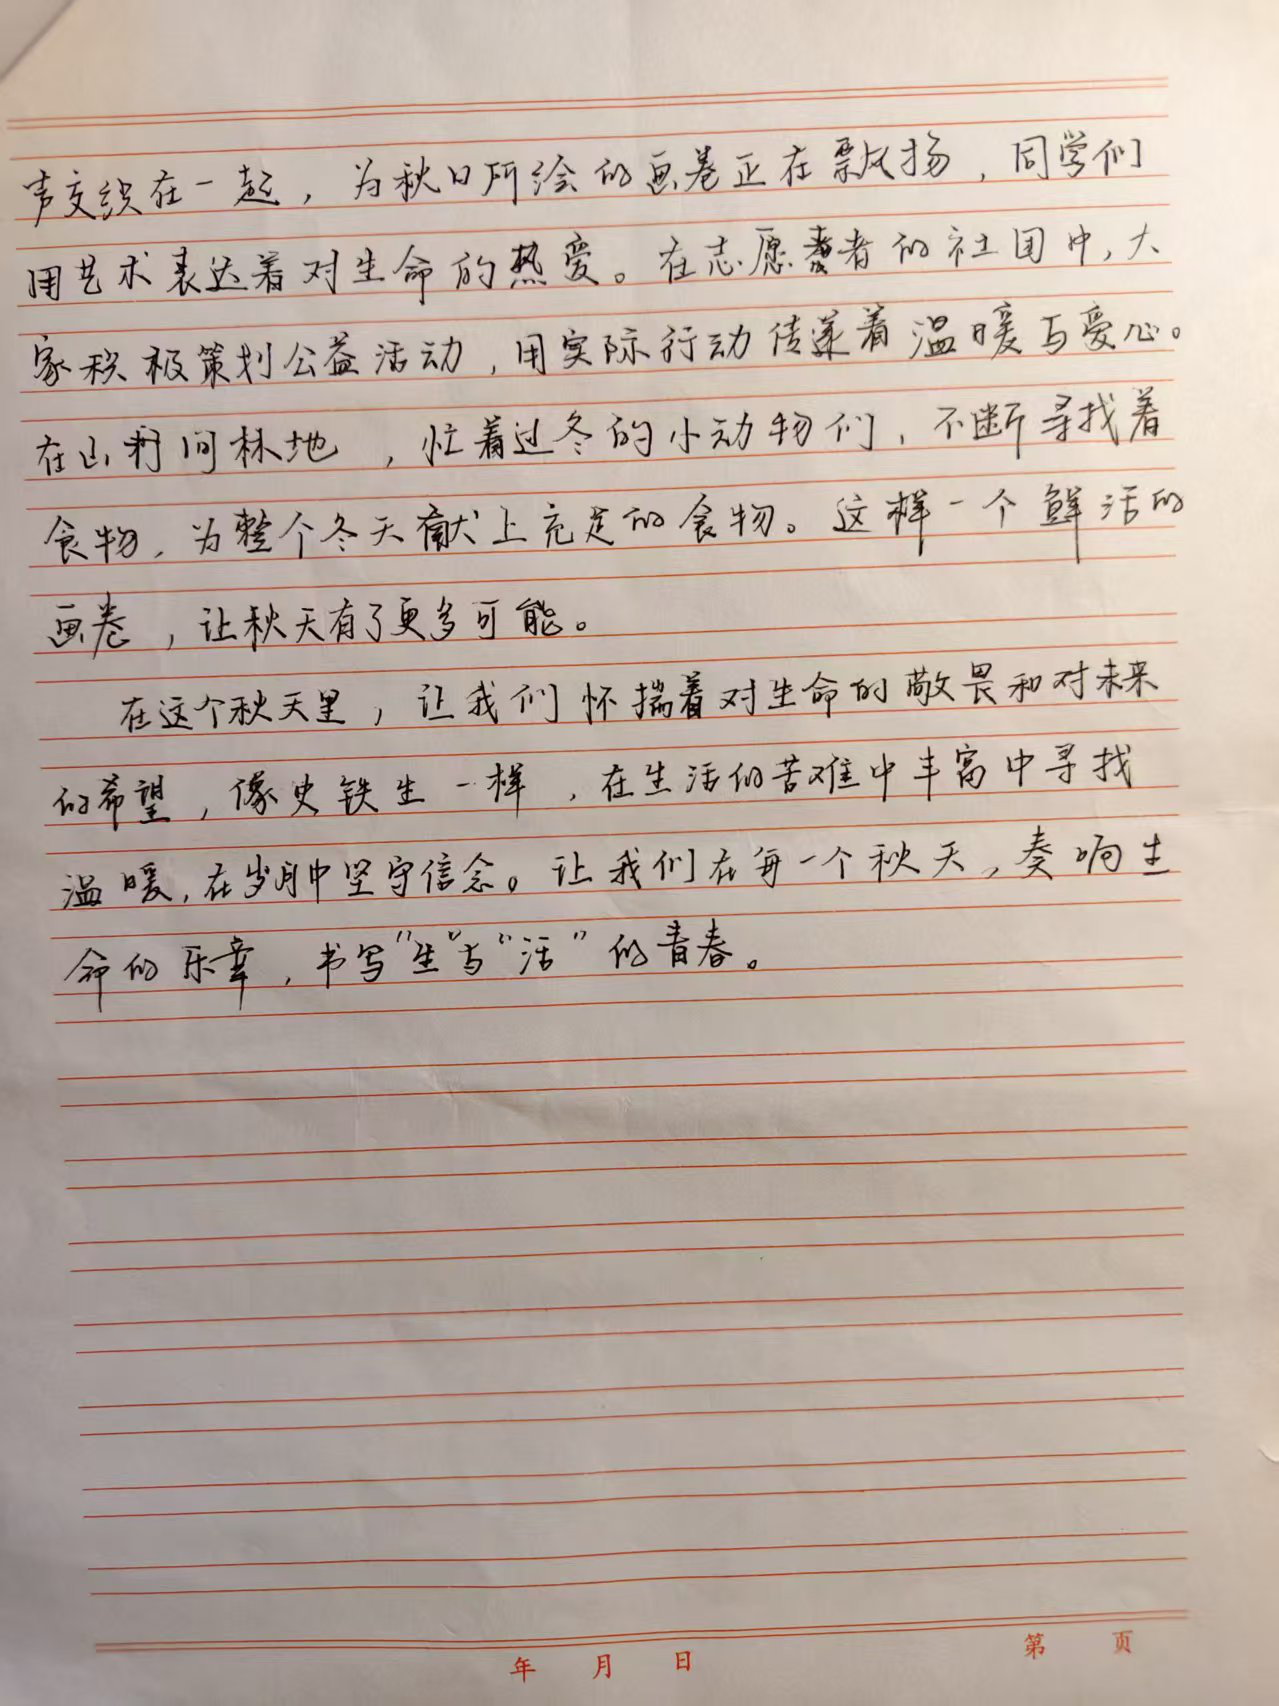 声交织在一起，为秋日所绘的画卷正在飘扬，同学们
用艺术表达着对生命的热爱。在志愿者的社团中，大
家积极策划公益活动，用实际行动传递着温暖与爱心。
在山间林地，忙着过冬的小动物们，不断寻找着
食物，为整个冬天献上充足的食物。这样一个鲜活的
画卷，让秋天有了更多可能。
在这个秋天里，让我们怀揣着对生命的敬畏和对未来
的希望，像史铁生一样，在生活的苦难中丰富中寻找
温暖，在岁月中坚守信念。让我们在每一个秋天，奏响生
命的乐章，书写"生"与"活"的青春。
年 月 日
第 页